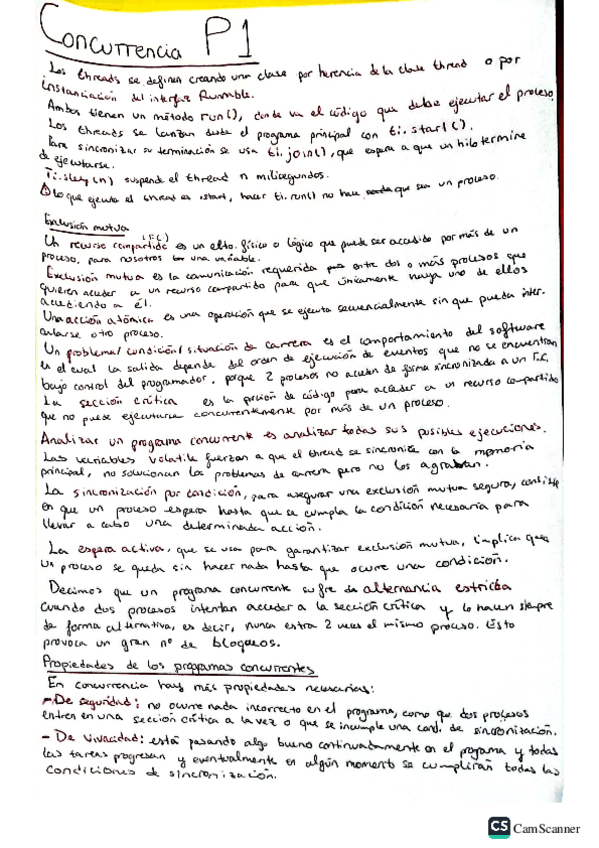 Concurrencia P1
Los threads se definen creando una clase por herencia de la clase thread o por
instanciación del interfaz Runnable.
Ambos tienen un método run(), donde va el código que debe ejecutar el proceso.
Los threads se lanzan desde el programa principal con ti.start().
Para sincronizar su terminación se usa ti.join(), que espera a que un hilo termine
de ejecutarse.
Ti.sleep(n) suspende el thread n milisegundos.
lo que ejecuta el thread es start, hacer ti.run() no hace que sea un proceso.
Exclusión mutua
Un recurso compartido es un elto. físico o lógico que puede ser accedido por más de un
proceso, para nosotros una variable.
Exclusión mutua es la comunicación requerida entre dos o más procesos que
quieren acceder a un recurso compartido para que únicamente haya uno de ellos
accediendo a él.
Una acción atómica es una operación que se ejecuta secuencialmente sin que pueda inter-
calarse otro proceso.
Un problema/condición/situación de carrera es el comportamiento del software
en el cual la salida depende del orden de ejecución de eventos que no se encuentran
bajo control del programador, porque 2 procesos no acceden de forma sincronizada a un r.c.
La sección crítica es la porción de código para acceder a un recurso compartido
que no puede ejecutarse concurrentemente por más de un proceso.
Analizar un programa concurrente es analizar todas sus posibles ejecuciones.
Las variables volatile fuerzan a que el thread se sincronice con la memoria
principal, no solucionan los problemas de carrera pero no los agravan.
La sincronización por condición, para asegurar una exclusión mutua segura, consiste
en que un proceso espera hasta que se cumpla la condición necesaria para
llevar a cabo una determinada acción.
La espera activa, que se usa para garantizar exclusión mutua, implica que
un proceso se queda sin hacer nada hasta que ocurre una condición.
Decimos que un programa concurrente sufre de alternancia estricta
cuando dos procesos intentan acceder a la sección crítica y lo hacen siempre
de forma alternativa, es decir, nunca entra 2 veces el mismo proceso. Esto
provoca un gran nº de bloqueos.
Propiedades de los programas concurrentes
En concurrencia hay más propiedades necesarias:
- De seguridad: no ocurre nada incorrecto en el programa, como que dos procesos
entren en una sección crítica a la vez o que se incumple una cond. de sincronización.
- De vivacidad: está pasando algo bueno continuadamente en el programa y todas
las tareas progresan y eventualmente en algún momento se cumplirán todas las
condiciones de sincronización.
CS CamScanner